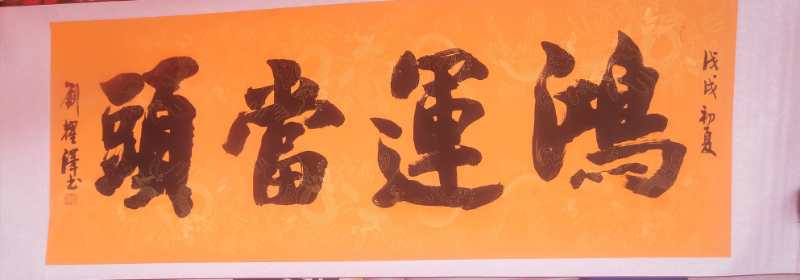 戊戌初夏
鴻運當頭
劉耀澤书